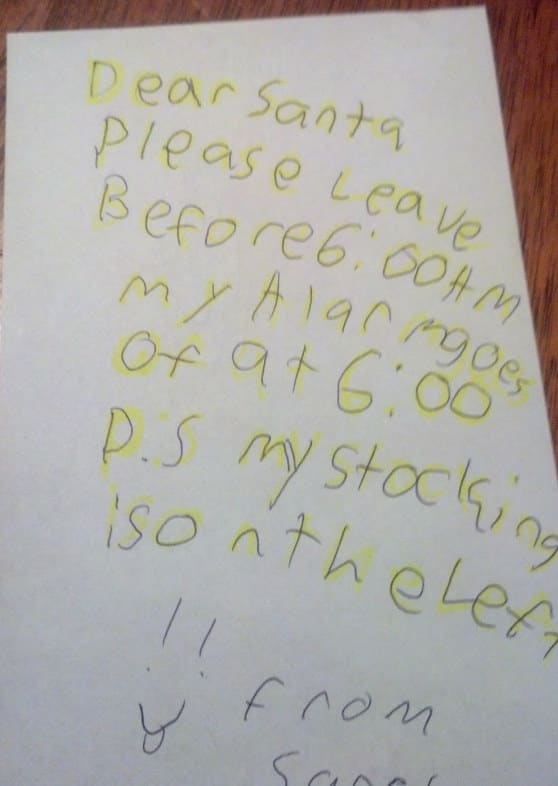 Dear Santa
Please Leave
Before 6:00AM
my Alarm goes
Of at 6:00
P.S my stocking
is on the Left
!!
from